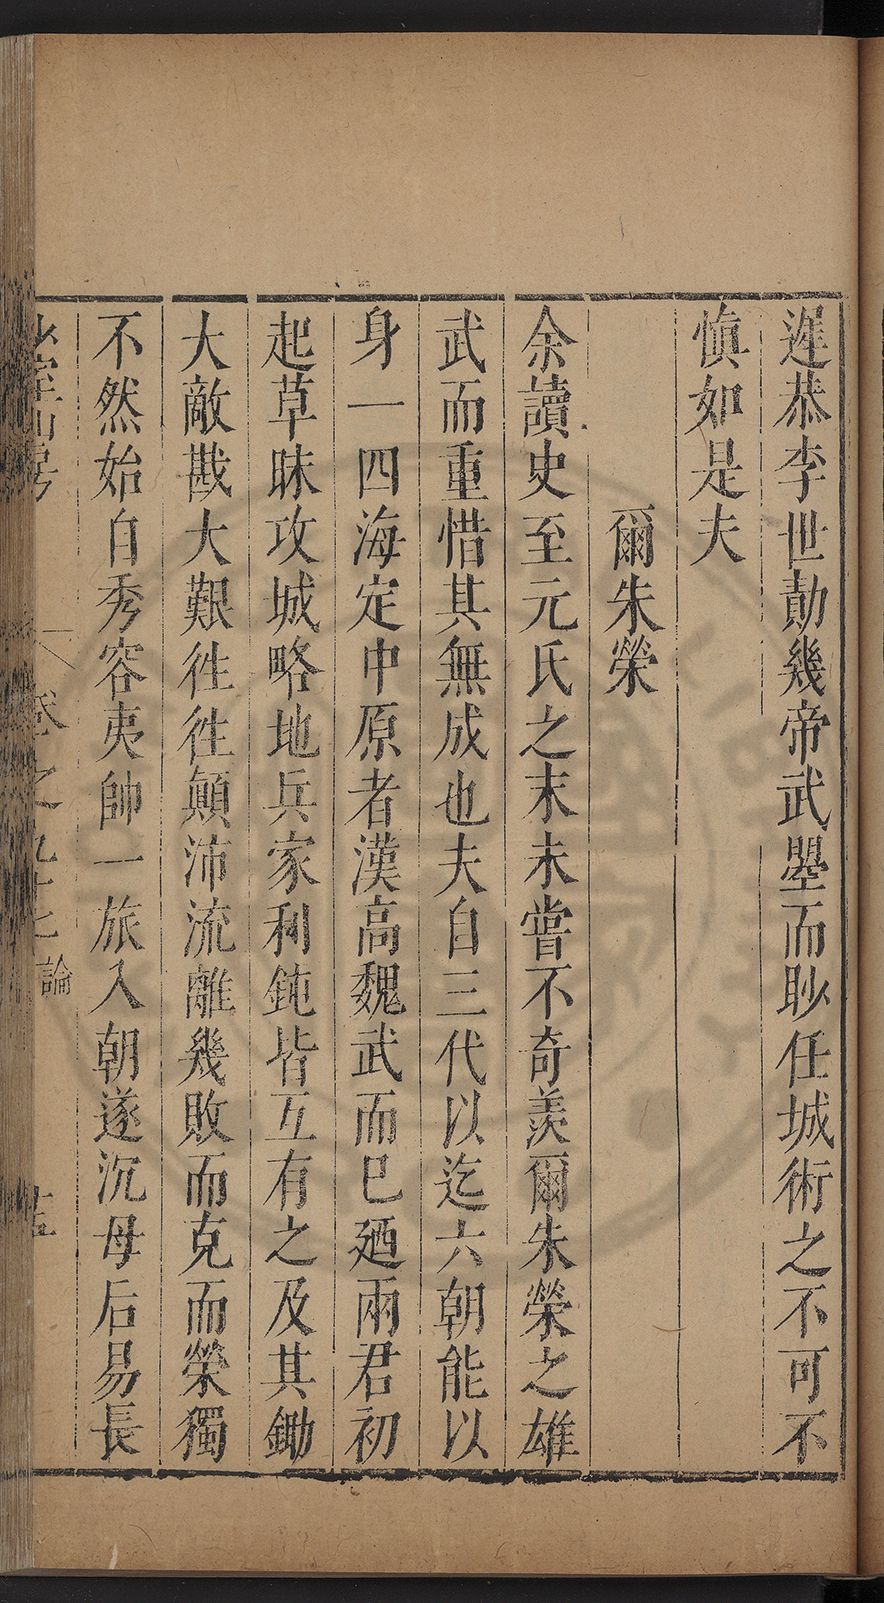 遲恭李世勣幾帝武曌而眇任城術之不可不
慎如是夫
爾朱榮
余讀史至元氏之末未嘗不奇羨爾朱榮之雄
武而重惜其無成也夫自三代以迄六朝能以
身一四海定中原者漢高魏武而已廼兩君初
起草昧攻城略地兵家利鈍皆互有之及其鋤
大敵戡大艱徃徃顛沛流離幾敗而克而榮獨
不然始自秀容夷帥一旅入朝遂沉母后易長
少室山房 卷之九十七 論